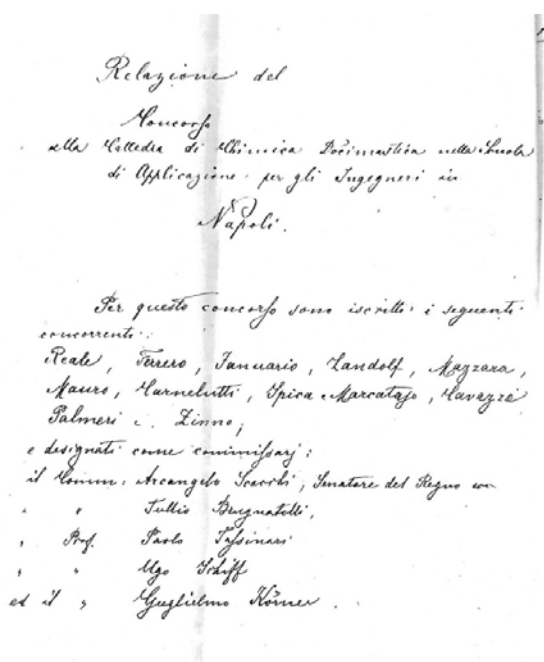 Relazione del
Concorso
alla Cattedra di Chimica Docimastica nella Scuola
di Applicazione per gli Ingegneri in
Napoli.
Per questo concorso sono iscritti i seguenti
concorrenti:
Reale, Ferrero, Januario, Landolf, Mazzara,
Mauro, Carnelutti, Spica Marcatajo, Cavazzi
Palmeri e Zinno;
e designati come commissarj:
il Comm: Arcangelo Scacchi, Senatore del Regno
" " Tullio Brugnatelli,
" Prof. Paolo Tassinari
" " Ugo Schiff
ed il " Guglielmo Körner.